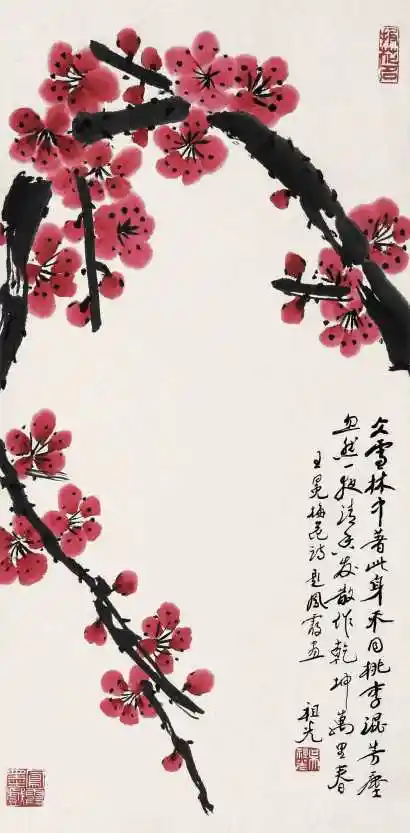 仌雪林中著此身不同桃李混芳塵
忽然一夜清香发散作乾坤萬里春
王冕梅花詩題鳳霞畫
祖光